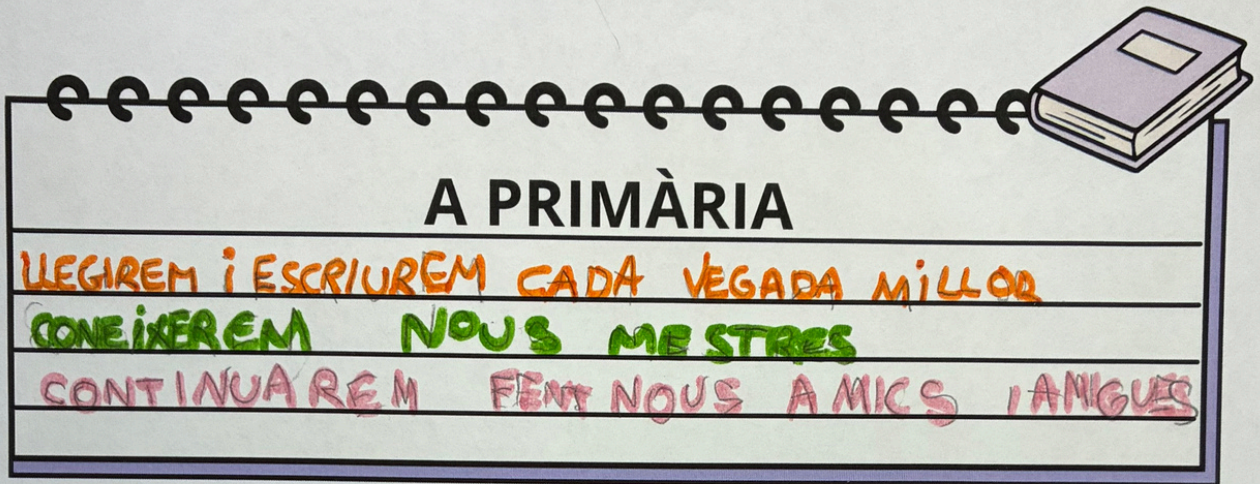 A PRIMÀRIA
LLEGIREM i ESCRIUREM CADA VEGADA MiLLOR
CONEiXEREM NOUS MESTRES
CONTINUAREM FENT NOUS AMICS I AMIGUES